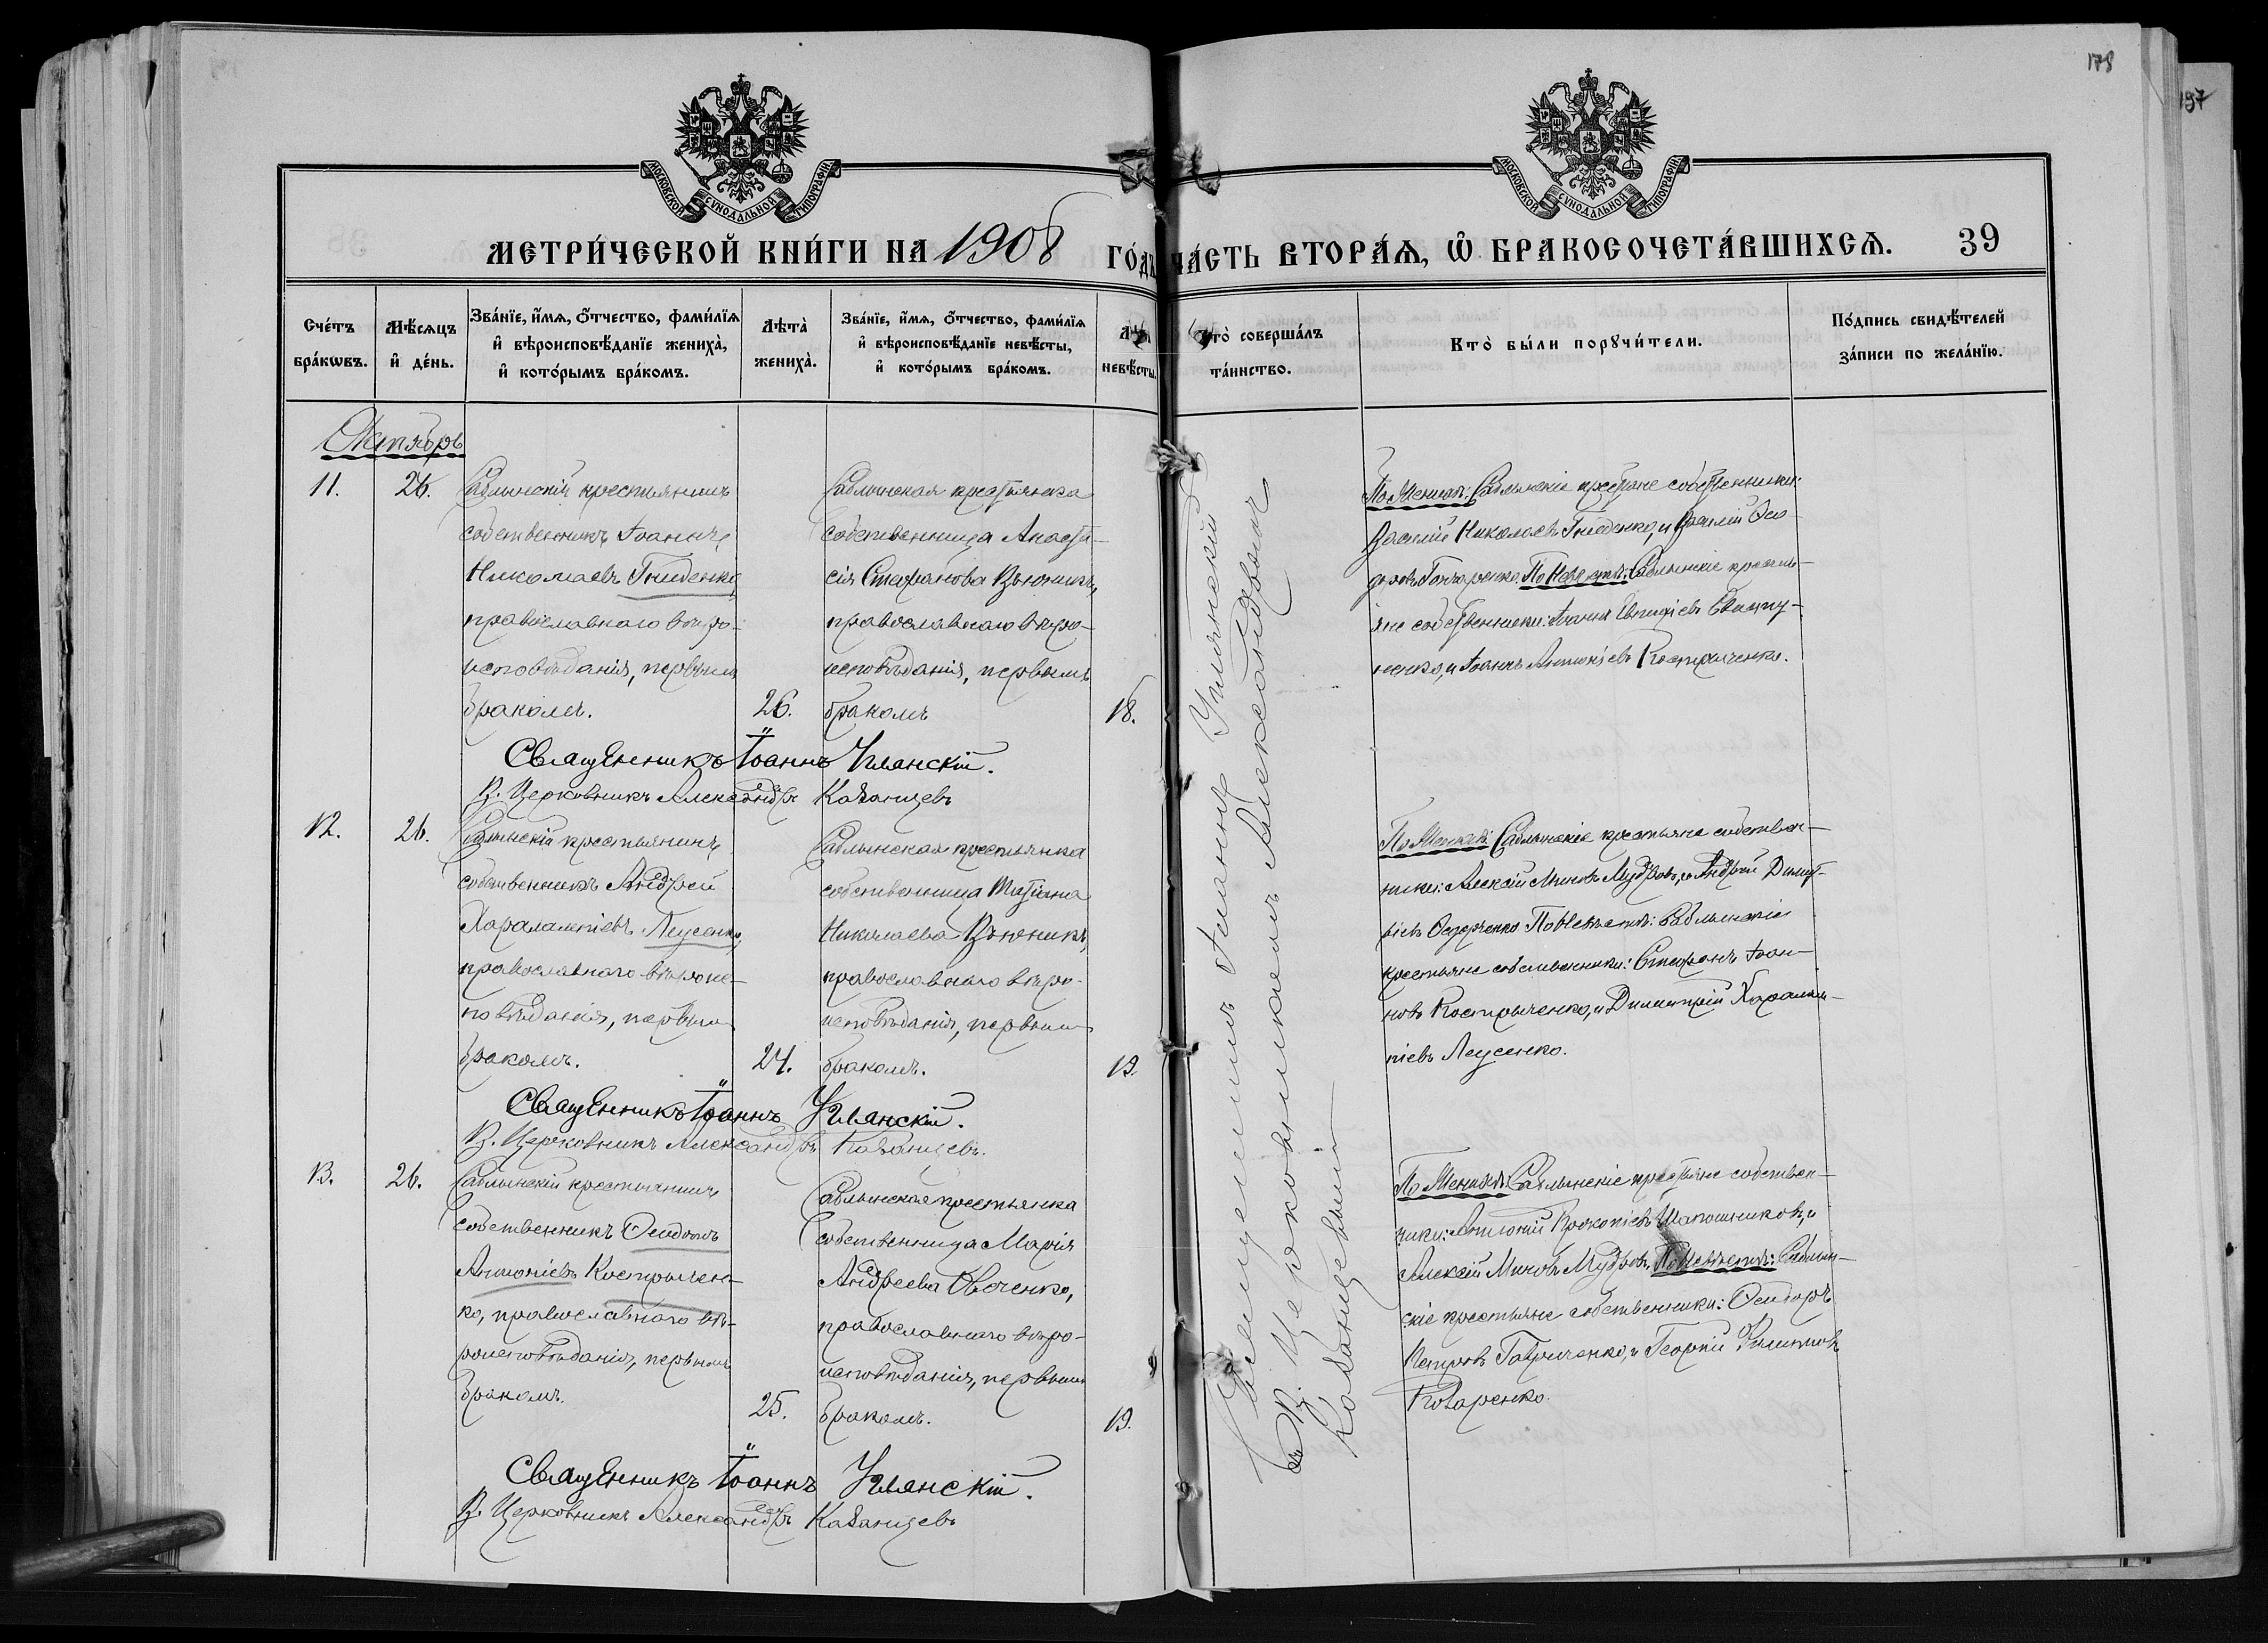 178
197
МОСКОВСКОЙ СѴНОДАЛЬНОЙ ТИПОГРАФІИ
МОСКОВСКОЙ СѴНОДАЛЬНОЙ ТИПОГРАФІИ
МЕТРИ́ЧЕСКОЙ КНИ́ГИ НА 1908 ГО́ДЪ ЧА́СТЬ ВТОРА́Ѧ, Ѽ БРАКОСОЧЕТА́ВШИХСѦ. 39
Сче́тъ бра́кѡвъ.
Мѣ́сѧцъ и҆ де́нь.
Зва́нїе, и҆́мѧ, ѻ҆́тчество, фами́лїѧ
и҆ вѣроисповѣ́данїе жениха̀,
и҆ кото́рымъ бра́комъ.
Лѣта̀ жениха̀.
Зва́нїе, и҆́мѧ, ѻ҆́тчество, фами́лїѧ
и҆ вѣроисповѣ́данїе невѣ́сты,
и҆ кото́рымъ бра́комъ.
невѣ́сты.
Кто̀ соверша́лъ
та́инство.
Кто̀ бы́ли порꙋчи́тели.
По́дпись свидѣ́телей
за́писи по жела́нїю.
Октябрь
11. 26.
Саблынскій крестьянинъ
собственникъ Іоаннъ
Николаевъ Гниденко,
православнаго вѣро-
исповѣданія, первымъ
бракомъ. 26.
Саблынская крестьянка
собственница Анаста-
сія Стефанова Вьюникъ,
православнаго вѣро-
исповѣданія, первымъ
бракомъ 18.
По Женихѣ: Саблынскіе крестьяне собственники:
Василій Николаевъ Гниденко, и Василій Ѳео-
доровъ Гончаренко. По Невѣстѣ: Саблынскіе кресть-
яне собственники: Іоаннъ
и Іоаннъ Антоніевъ Костриченко.
Священникъ Іоаннъ Углянскій.
В. Церковникъ Александръ Казанцевъ
12. 26.
Саблынскій крестьянинъ
собственникъ Андрей
Харалампіевъ Леусенко,
православнаго вѣроис-
повѣданія, первымъ
бракомъ. 24.
Саблынская крестьянка
собственница Татіана
Николаева Вьюникъ,
православнаго вѣро-
исповѣданія, первымъ
бракомъ. 19.
По Женихѣ: Саблынскіе крестьяне собствен-
ники: Алексій Миновъ Мудровъ, и Андрей Димит-
ріевъ Федорченко По Невѣстѣ: Саблынскіе
крестьяне собственники: Стефанъ Іоан-
новъ Костриченко, и Димитрій Харалам-
піевъ Леусенко.
Священникъ Іоаннъ Углянскій.
В. Церковникъ Александръ Казанцевъ.
13. 26.
Саблынскій крестьянинъ
собственникъ Ѳеодотъ
Антоніевъ Костричен-
ко, православнаго вѣ-
роисповѣданія, первымъ
бракомъ. 25.
Саблынская крестьянка
собственница Марія
Андреева Овсченко,
православнаго вѣро-
исповѣданія, первымъ
бракомъ. 19.
По Женихѣ: Саблынскіе крестьяне собствен-
ники: Антоній Прокопіевъ Шапошниковъ, и
Алексій Миновъ Мудровъ. По Невѣстѣ: Саблын-
скіе крестьяне собственники: Ѳеодоръ
Петровъ Гавриченко, и Георгій Филипповъ
Коваренко.
Священникъ Іоаннъ Углянскій.
В. Церковникъ Александръ Казанцевъ
Священникъ Іоаннъ Углянскій
съ В. Церковникомъ Александромъ
Казанцевымъ